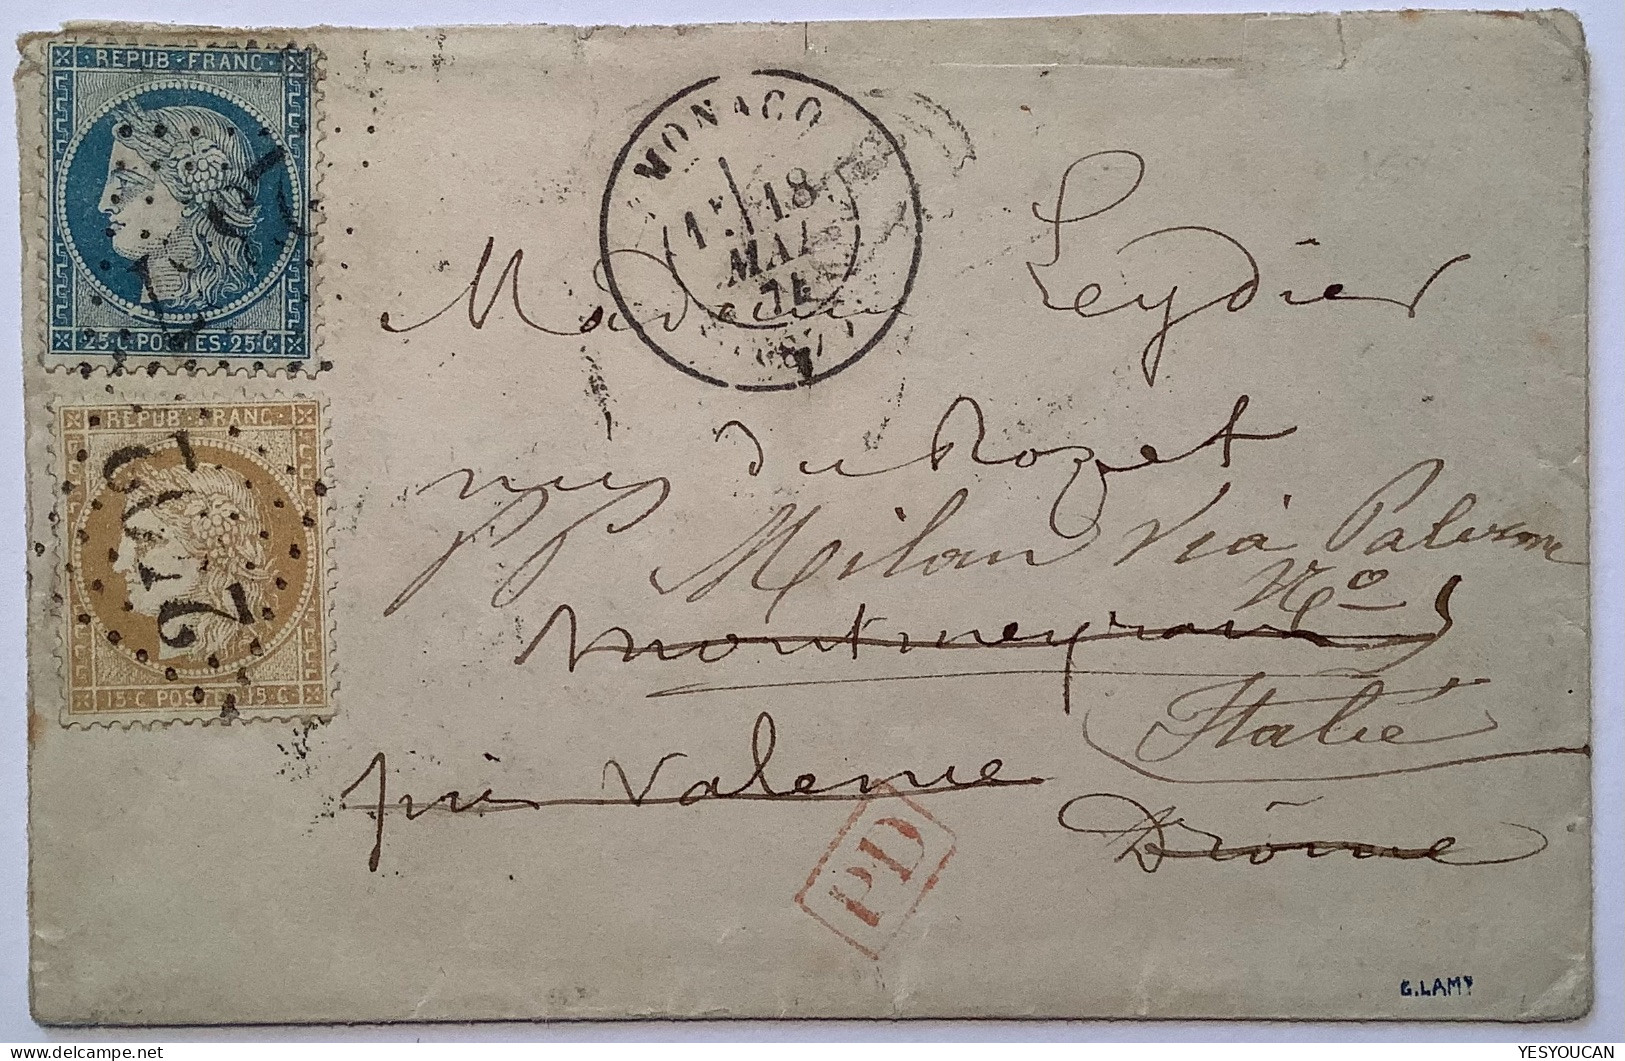 REPUB·FRANC·
25·C·POSTES·25·C
REPUB·FRANC·
15·C·POSTES·15·C
2602
MONACO
18
MAI
74
(87)
Madame Leydier
rue du Rozet
PP Milan Via Palerme
No 5
Montmeyrand
Italie
près Valence
Drôme
PD
G.LAMY
YESYOUCAN